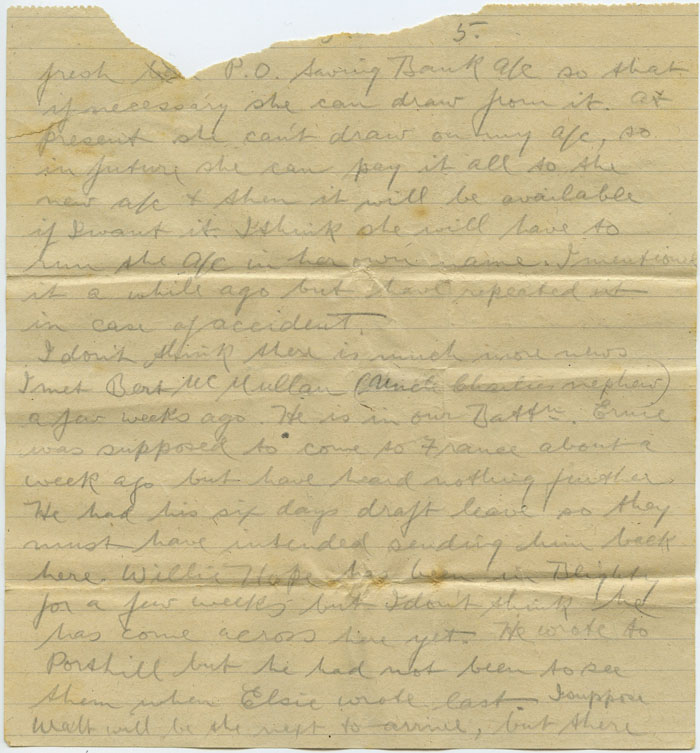 5.
fresh P.O. Saving Bank a/c so that
if necessary she can draw from it. At
present she can't draw on my a/c, so
in future she can pay it all to the
new a/c & then it will be available
if I want it. I think she will have to
run the a/c in her own name. I mentioned
it a while ago but have repeated it
in case of accident.
I don't think there is much more news
I met Bert McMullan (Uncle Charlies nephew)
a few weeks ago. He is in our Battn. Ernie
was supposed to come to France about a
week ago but have heard nothing further.
He had his six days draft leave so they
must have intended sending him back
here. Willie Hope has been in Blighty
for a few weeks but I don't think he
has come across here yet. He wrote to
Porshill but he had not been to see
them when Elsie wrote last. I suppose
Walt will be the next to arrive, but there